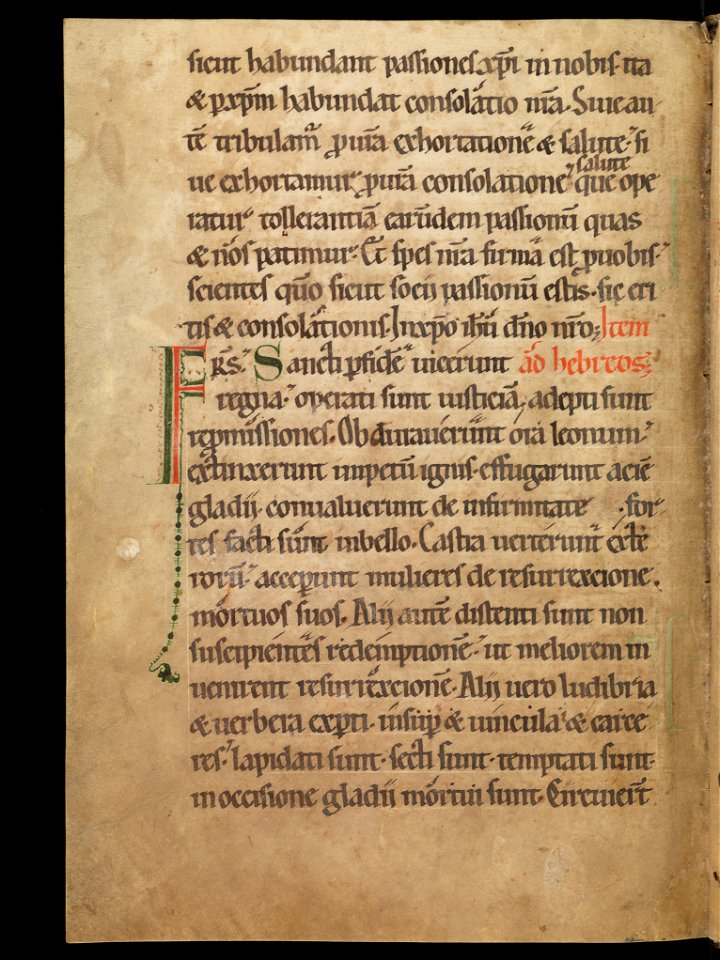 sicut habundant passiones xp̄i in nobis· ita
& ꝑ xp̄m habundat consolatio nr̄a· Siue au
tē tribulam̄ ꝓ ur̄a exhortationē & salutē· si
salute
ue exhortamur ꝓ ur̄a consolationē que ope
ratur tollerantiā earūdem passionū quas
& nos patimur· Et spes nr̄a firma est ꝓ uobis·
scientes qūo sicut socii passionū estis· sic eri
tis & consolationis· In xp̄o ih̄u dn̄o nr̄o; Item
FRS· Sancti ꝑ fidē uicerunt ad hebreos;
regna· operati sunt iusticiā, adepti sunt
repmissiones· Obdurauerunt ora leonum·
extinxerunt impetū ignis· effugarunt aciē
gladii· conualuerunt de infirmitate · for
tes facti sunt in bello· Castra uerterunt exte
rorū· acceꝑunt mulieres de resurrexcione
mortuos suos· Alij autē distenti sunt non
suscipientes redemptionē· ut meliorem in
uenirent resurrexcionē· Alij uero ludibria
& uerbera exꝑti· insuꝑ & uincula & carce
res· lapidati sunt· secti sunt· temptati sunt·
in occisione gladii mortui sunt· Circuiert̄